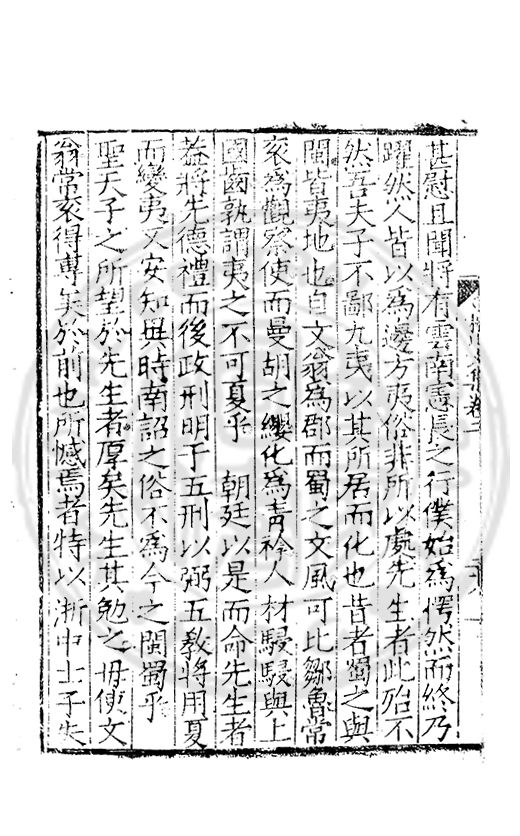 甚慰且聞將有雲南憲長之行僕始為愕然而終乃
躍然人皆以為邊方夷俗非所以處先生者此殆不
然吾夫子不鄙九夷以其所居而化也昔者蜀之與
閩皆夷地也自文翁為郡而蜀之文風可比鄒魯常
衮為觀察使而曼胡之纓化為青衿人材駸駸與上
國齒孰謂夷之不可夏乎 朝廷以是而命先生者
益將先德禮而後政刑明于五刑以弼五教將用夏
而變夷又安知異時南詔之俗不為今之閩蜀乎
聖天子之所望於先生者厚矣先生其勉之毋使文
翁常衮得專美於前也所憾焉者特以浙中士子失